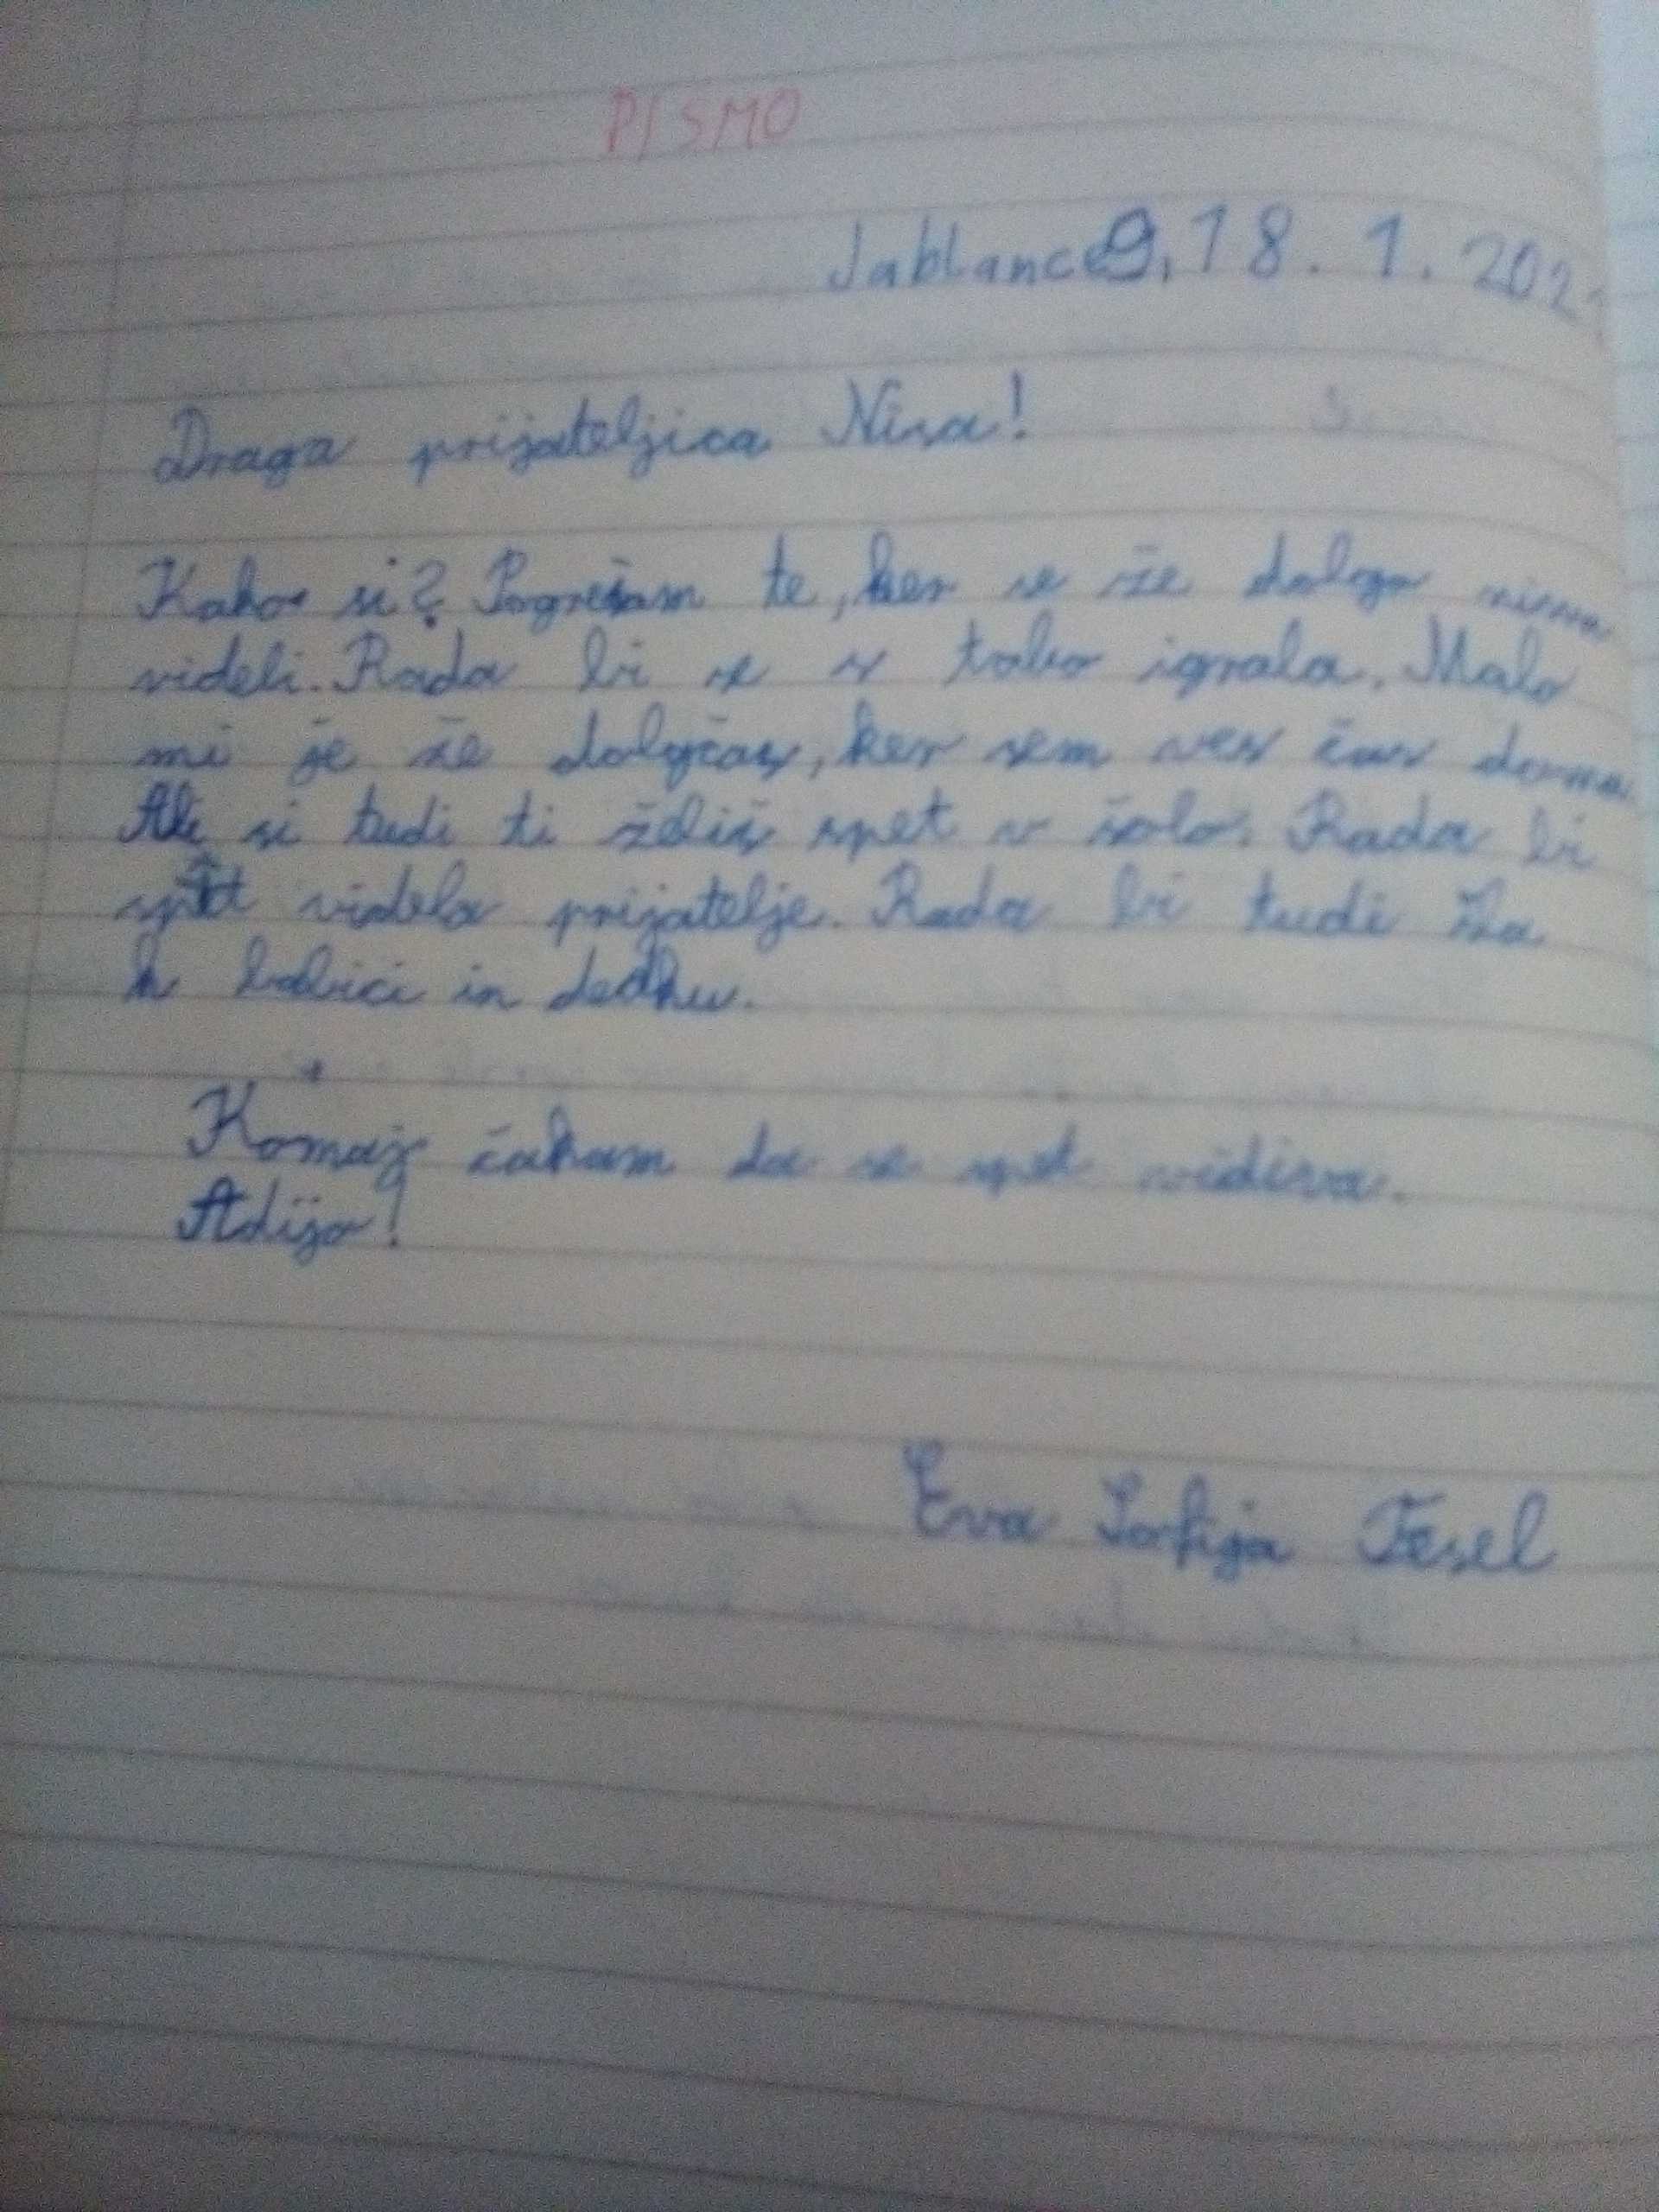 PISMO
Jablance, 18. 1. 202
Draga prijateljica Nisa!
Kako si? Pogrešam te, ker se že dolgo nismo
videli. Rada bi se s tabo igrala. Malo
mi je že dolgčas, ker sem ves čas doma.
Ali si tudi ti želiš spet v šolo. Rada bi
spet videla prijatelje. Rada bi tudi šla
k babici in dedku.
Komaj čakam da se spet vidiva.
Adijo!
Eva Sofija Fesel